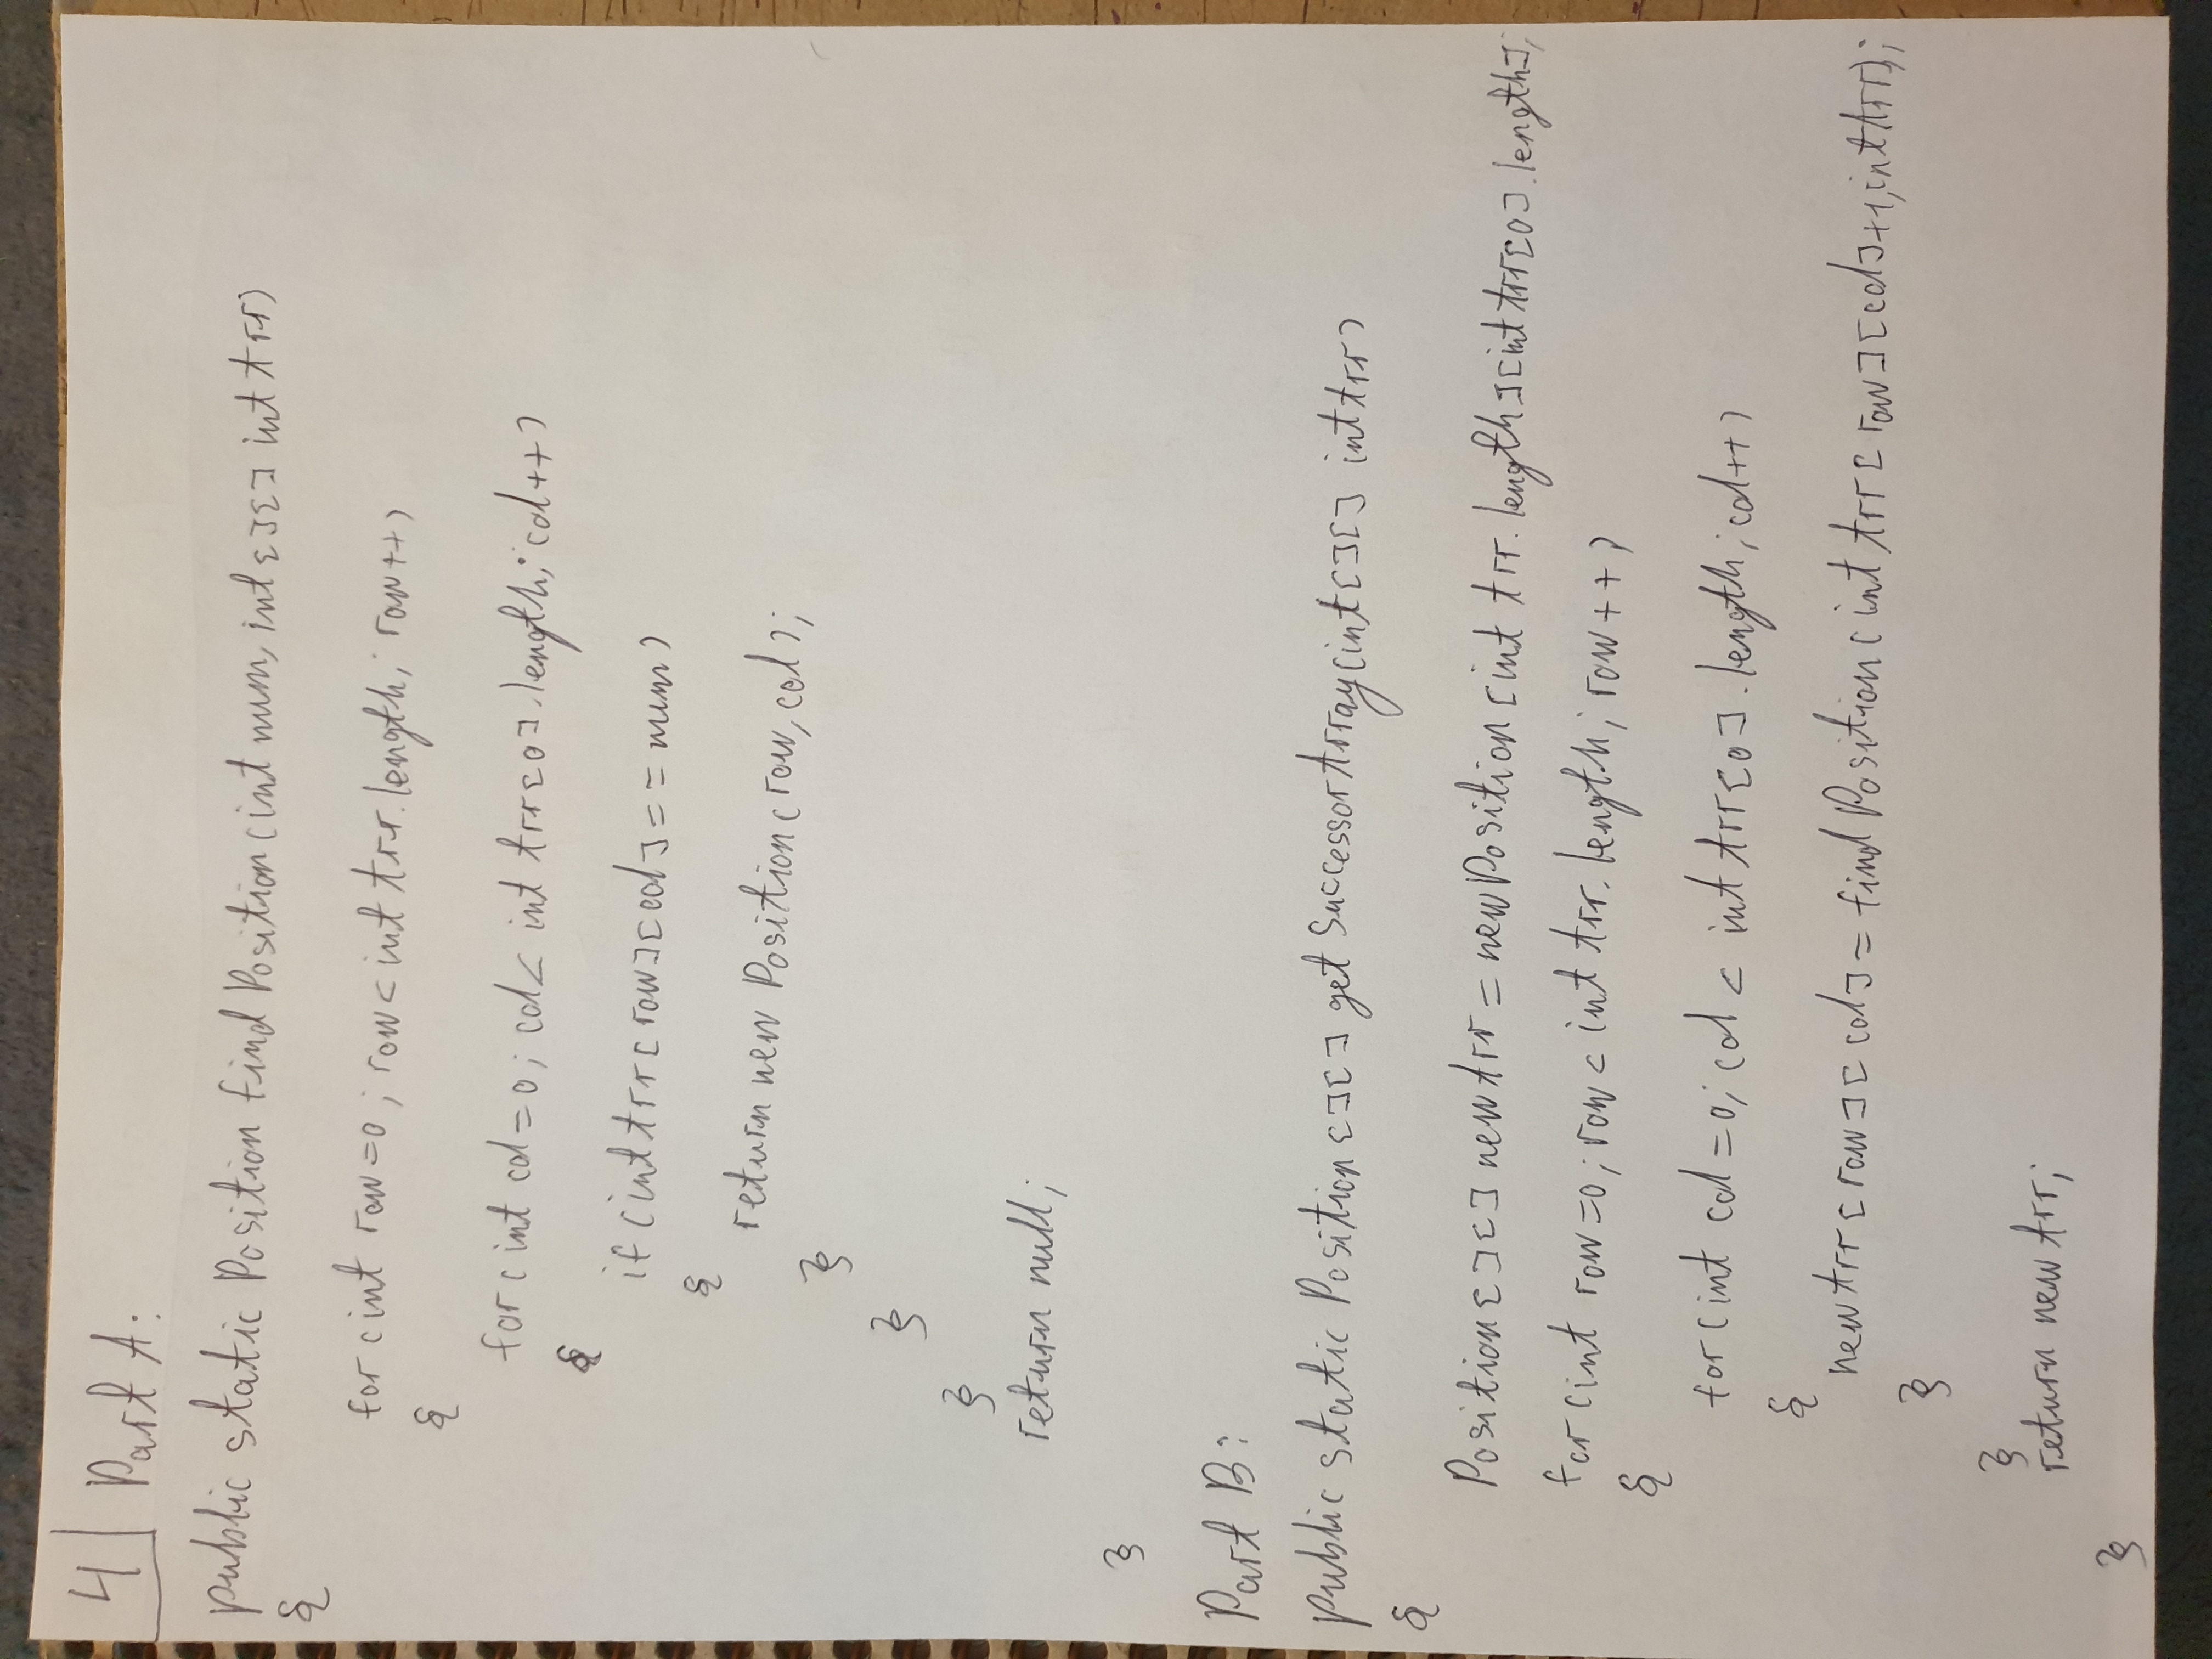 4 Part A:
public static Position findPosition(int num, int[][] intArr)
{
for(int row=0; row<intArr.length; row++)
{
for(int col=0; col<intArr[0].length; col++)
{
if(intArr[row][col]==num)
{
return new Position(row,col);
}
}
}
return null;
}
Part B:
public static Position[][] getSuccessorArray(int[][] intArr)
{
Position[][] newArr = new Position[intArr.length][intArr[0].length];
for(int row=0; row<intArr.length; row++)
{
for(int col=0; col<intArr[0].length; col++)
{
newArr[row][col]=findPosition(intArr[row][col]+1,intArr);
}
}
return newArr;
}